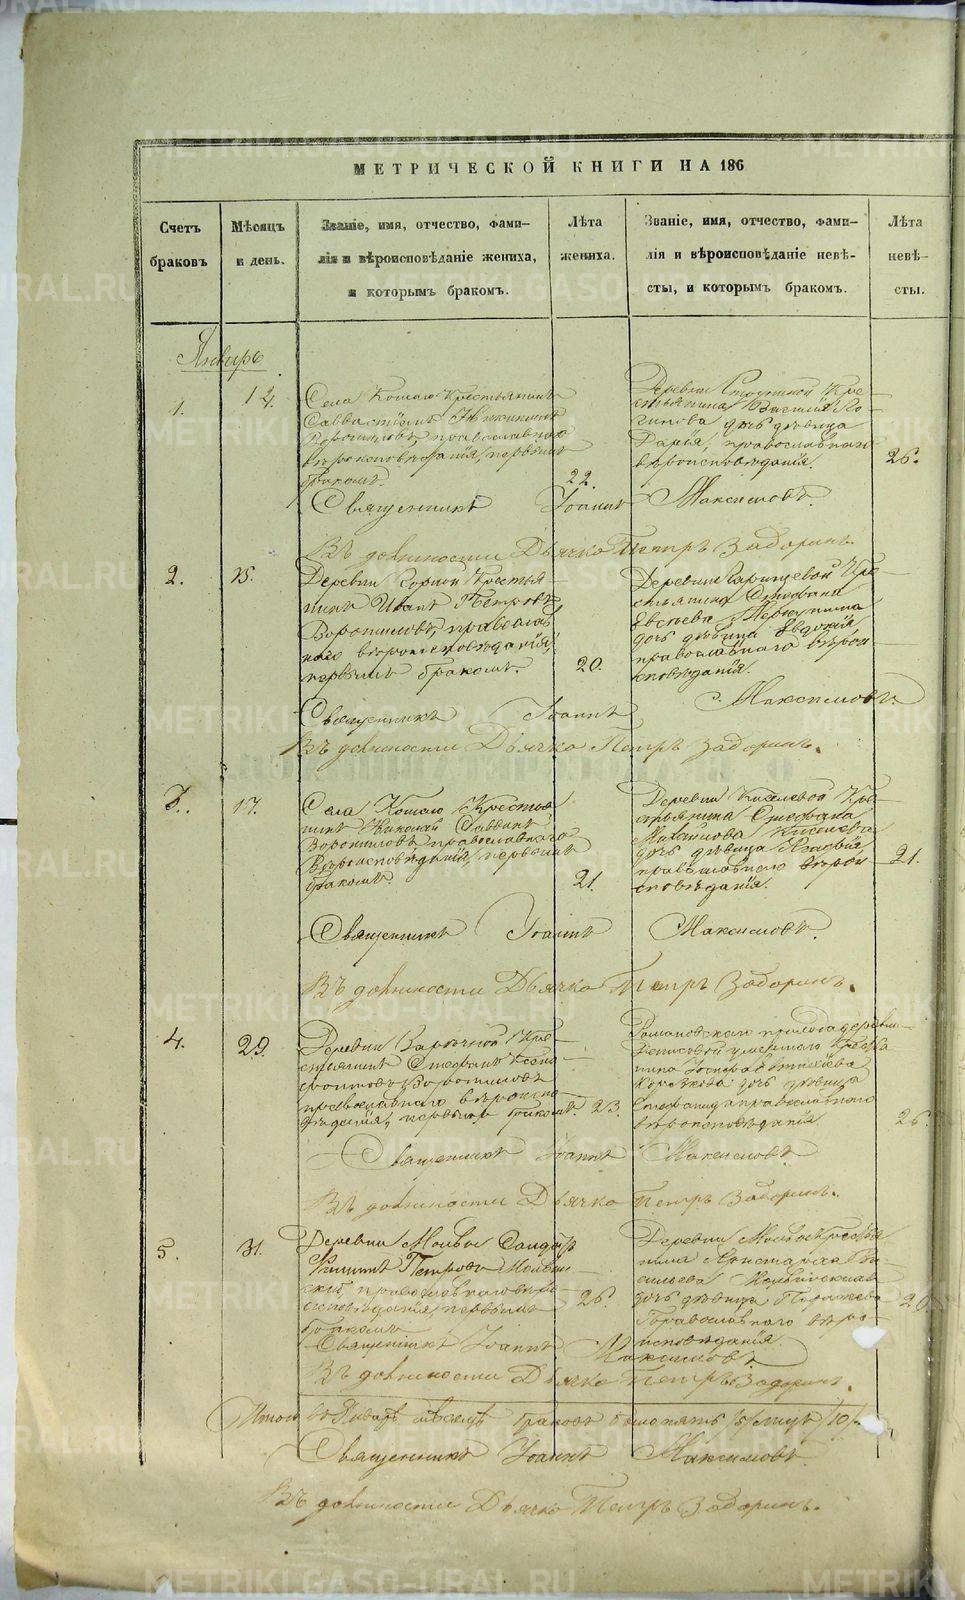 МЕТРИЧЕСКОЙ КНИГИ НА 186
Счетъ браковъ
Мѣсяцъ и день.
Званіе, имя, отчество, фами-
лія и вѣроисповѣданіе жениха,
и которымъ бракомъ.
Лѣта
жениха.
Званіе, имя, отчество, фами-
лія и вѣроисповѣданіе невѣ-
сты, и которымъ бракомъ.
Лѣта
невѣ-
сты.
Январь
1.
Села Кошаю Крестьянинъ
православнаго
вѣроисповѣданія, первымъ
бракомъ.
22.
Деревни Кре-
стьянина Василія Ло-
гинова дочь дѣвица
Дарья, православнаго
вѣроисповѣданія.
26.
Священникъ Іоаннъ Максимовъ.
Въ должности Дьячка Петръ Задоринъ.
2.
15.
Деревни Горной Крестья-
нинъ Иванъ Петровъ
Воротиловъ, православ-
наго вѣроисповѣданія,
первымъ бракомъ.
20.
Деревни Кре-
стьянина Стефана
дочь дѣвица Евдокія,
православнаго вѣрои-
сповѣданія.
Священникъ Іоаннъ Максимовъ.
Въ должности Дьячка Петръ Задоринъ.
3.
17.
Села Кошаю Крестья-
нинъ Николай Саввинъ
Воротиловъ, православнаго
Вѣроисповѣданія, первымъ
бракомъ.
21.
Деревни Киселевой Кре-
стьянина Стефана
Михайлова Киселева
дочь дѣвица
православнаго вѣрои-
сповѣданія.
21.
Священникъ Іоаннъ Максимовъ.
Въ должности Дьячка Петръ Задоринъ.
4.
29.
Деревни Кре-
стьянинъ Стефанъ Ксено-
фонтовъ Воротиловъ
православнаго вѣроиспо-
вѣданія, первымъ бракомъ.
23.
Романовскаго прихода деревни
Денисовой умершаго Крестья-
нина
дочь дѣвица
Стефанида православнаго
вѣроисповѣданія.
26.
Священникъ Іоаннъ Максимовъ.
Въ должности Дьячка Петръ Задоринъ.
5.
31.
Деревни Молвы Солдатъ
Филиппъ Петровъ Молвин-
скій, православнаго вѣро-
исповѣданія, первымъ
бракомъ.
26.
Деревни Молвы Крестья-
нина Аристарха Ва-
сильева
дочь дѣвица
Православнаго вѣро-
исповѣданія.
Священникъ Іоаннъ Максимовъ.
Въ должности Дьячка Петръ Задоринъ.
Итого въ Январѣ мѣсяцѣ браковъ было пять /5/ лицъ /10/
Священникъ Іоаннъ Максимовъ.
Въ должности Дьячка Петръ Задоринъ.
METRIKI.GASO-URAL.RU